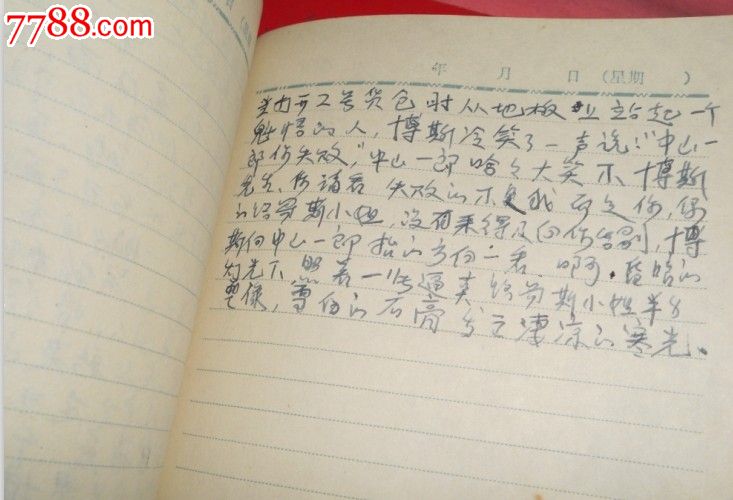 7788.com
年 月 日 (星期 )
当打开2号货仓时从地板上站起一个
魁悟的人，博斯冷笑了一声说："中山一
郎你失败，"中山一郎哈々大笑不，博斯
先生，你请看 失败的不是我 而是你，
的珞贺斯小姐，没有来得及向你告别，博
斯向中山一郎指的方向一看．啊，昏暗的
灯光下 照着一张逼真 珞贺斯小姐半身
塑像，雪白的石膏发立凄凉的寒光。